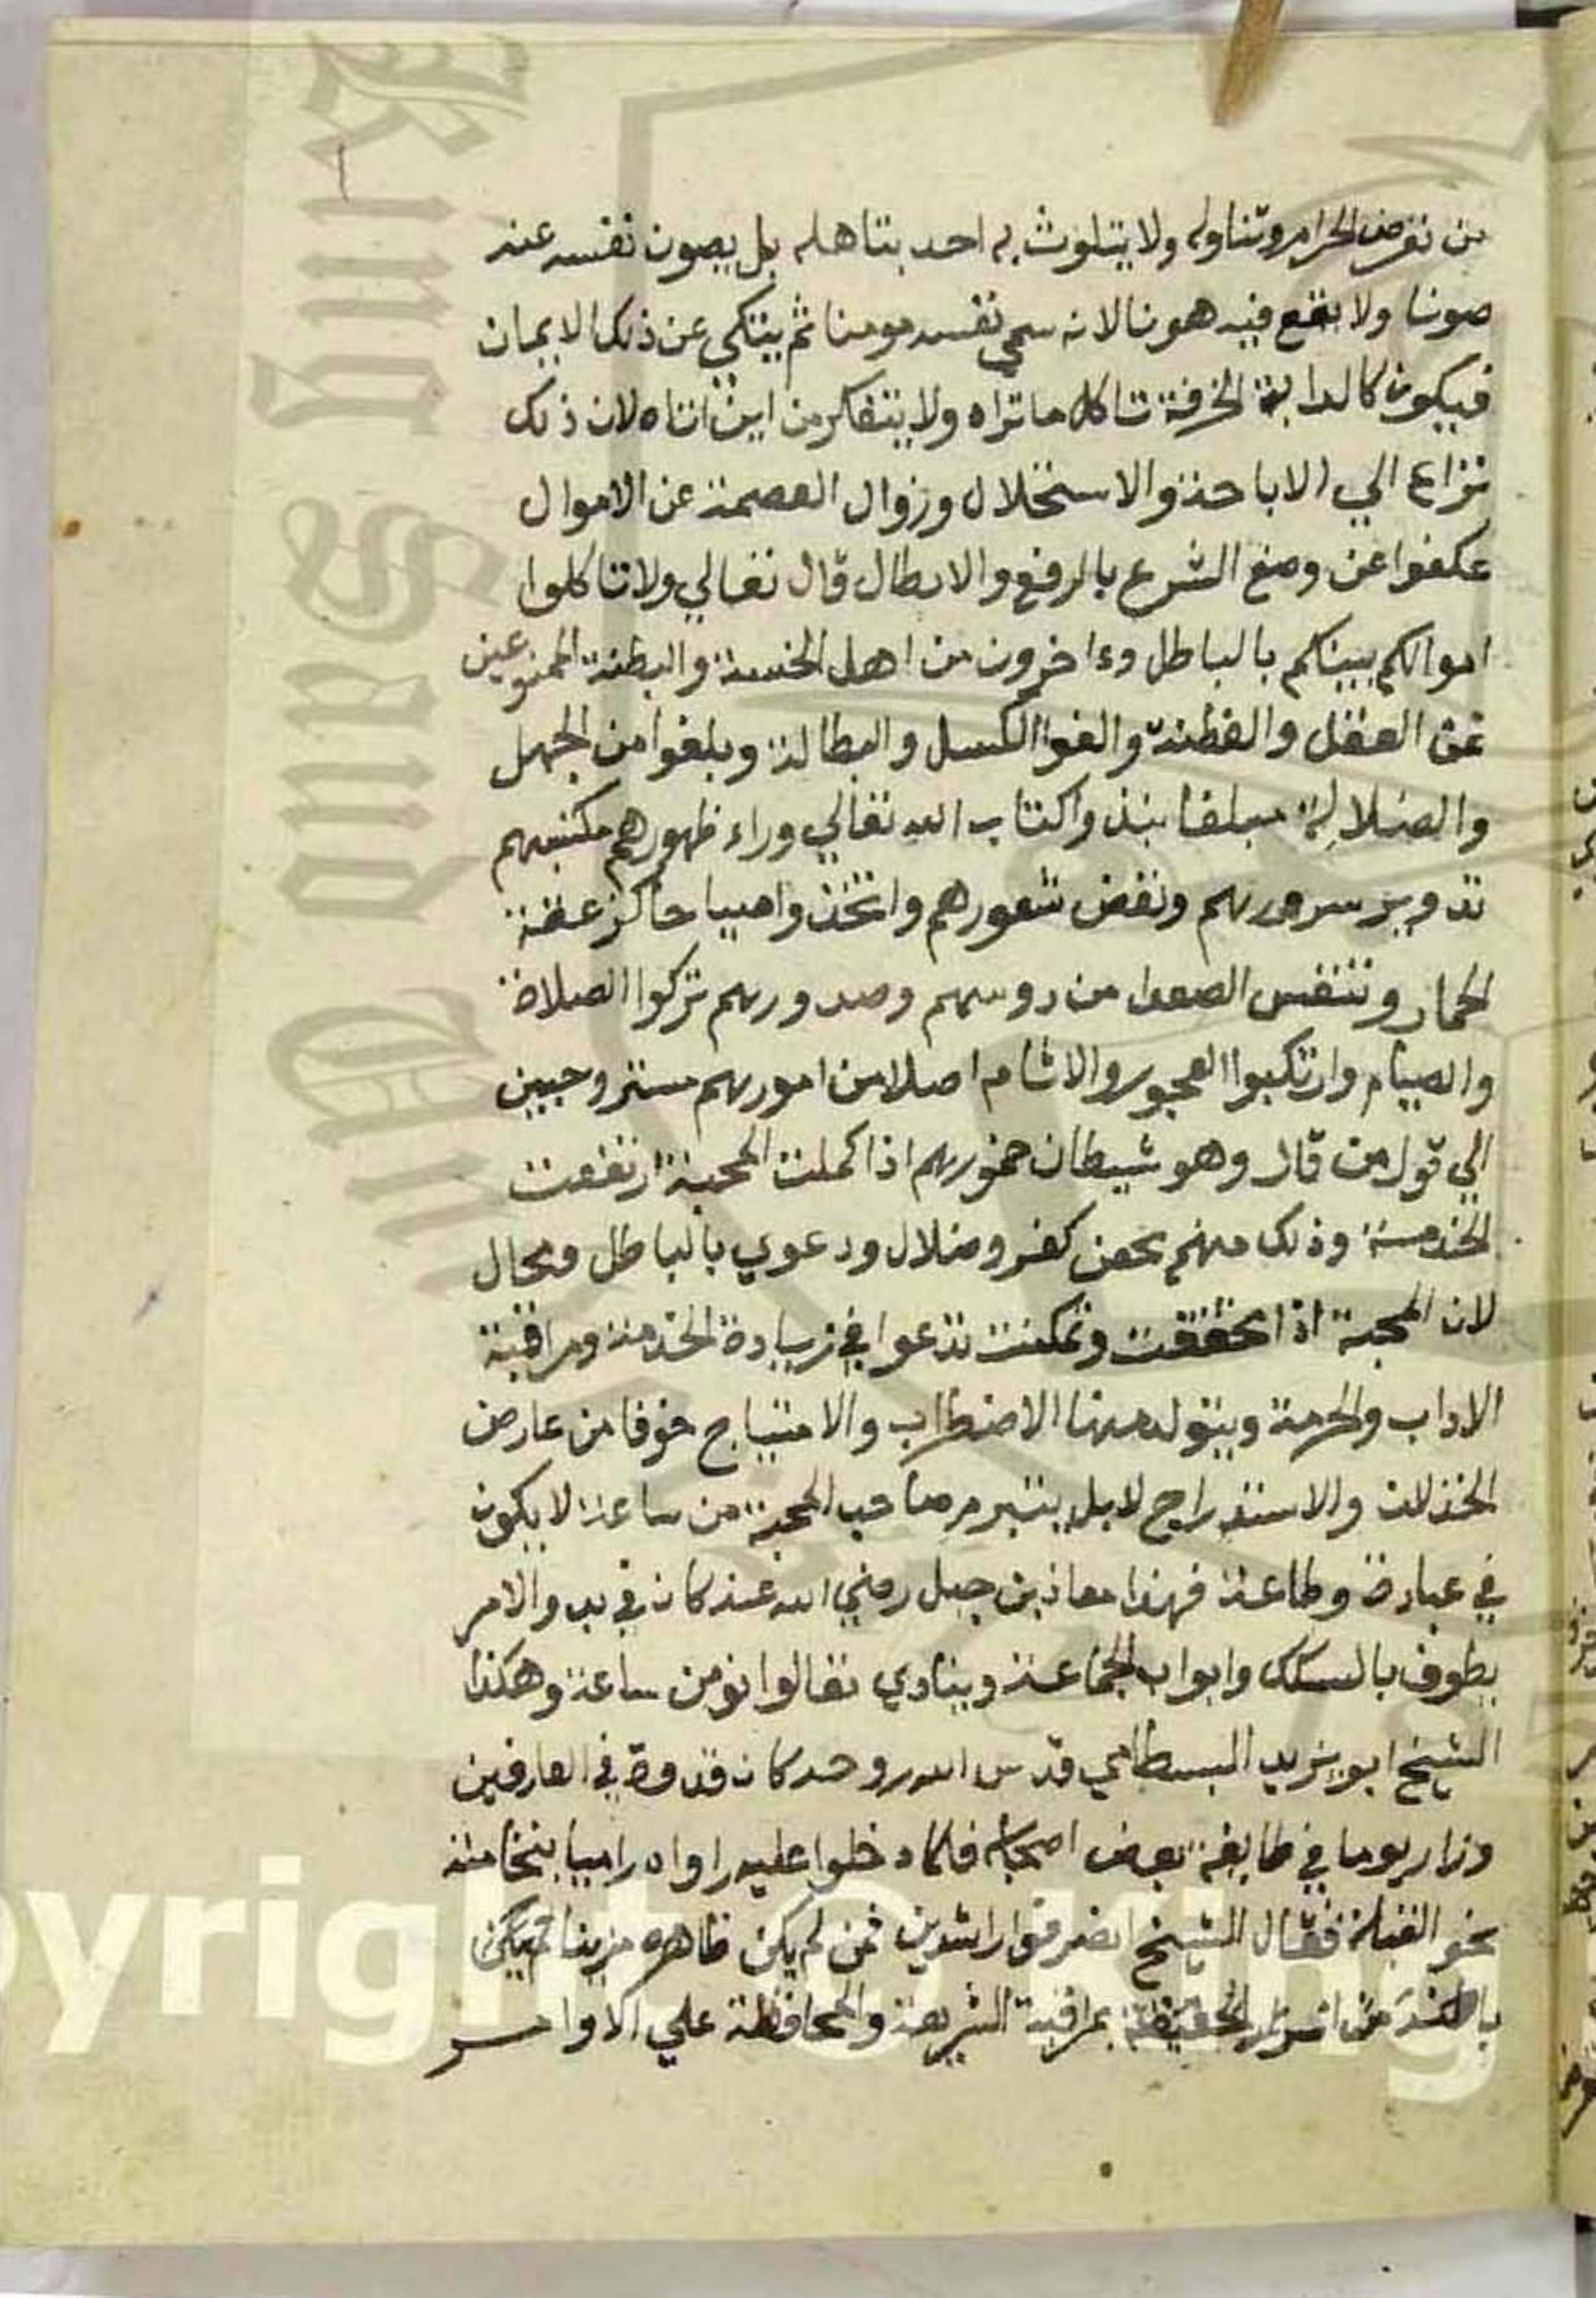 من تعرض الحرام وتناوله ولا يتلوث به احد بتاهله بل يصون نفسه عنه
صونا ولا يقع فيه هونا لانه سمي نفسه مومنا ثم يتكي عن ذلك الايمان
فيكون كالدابة الخرفة تاكل ما تراه ولا يتفكر من اين اتاه لان ذلك
نزاع الي الاباحة والاستحلال وزوال العصمة عن الاموال
عكفوا عن وضع الشرع بالرفع والابطال قال تعالي ولا تاكلوا
اموالكم بينكم بالباطل وءاخرون من اهل الخسة والبطنة الممنوعين
عن العقل والفطنة والفوا الكسل والبطالة وبلغوا من الجهل
والضلالة مبلغا نبذوا كتاب الله تعالي وراء ظهورهم مكسبهم
تدوير سرورهم ونفض شعورهم واتخذوا
الحمار وتنفس الصعدا من روسهم وصدورهم تركوا الصلاة
والصيام وارتكبوا الفجور والاثام اصلا من امورهم مستروحين
الي قول من قال وهو شيطان اذا كملت المحبة ارتفعت
الخدمة وذلك منهم محض كفر وضلال ودعوي بالباطل ومحال
لان المحبة اذا تحققت وتمكنت تدعوا في زيادة الخدمة ومراقبة
الاداب والحرمة ويتولد منها الاضطراب والاهتياج خوفا من عارض
الخذلان والاستدراج لا بل يتبرم صاحب المحبة من ساعة لا يكون
في عبادة وطاعة فهذا معاذ بن جبل رضي الله عنه كان في بدو الامر
يطوف بالسكك وابواب الجماعة وينادي تعالوا نومن ساعة وهكذا
الشيخ ابو يزيد البسطامي قدس الله روحه كان قدوة في العارفين
وزار يوما في طايفة بعض اصحابه فلما دخلوا عليه راواه راميا بنخامته
نحو القبلة فقال الشيخ انصرفوا راشدين فمن لم يكن ظاهره مزينا لم يكن
باطنه من اسرار الحقيقة بمراقبة الشريعة والمحافظة علي الاوامر
King Saud Un
Copyright © King